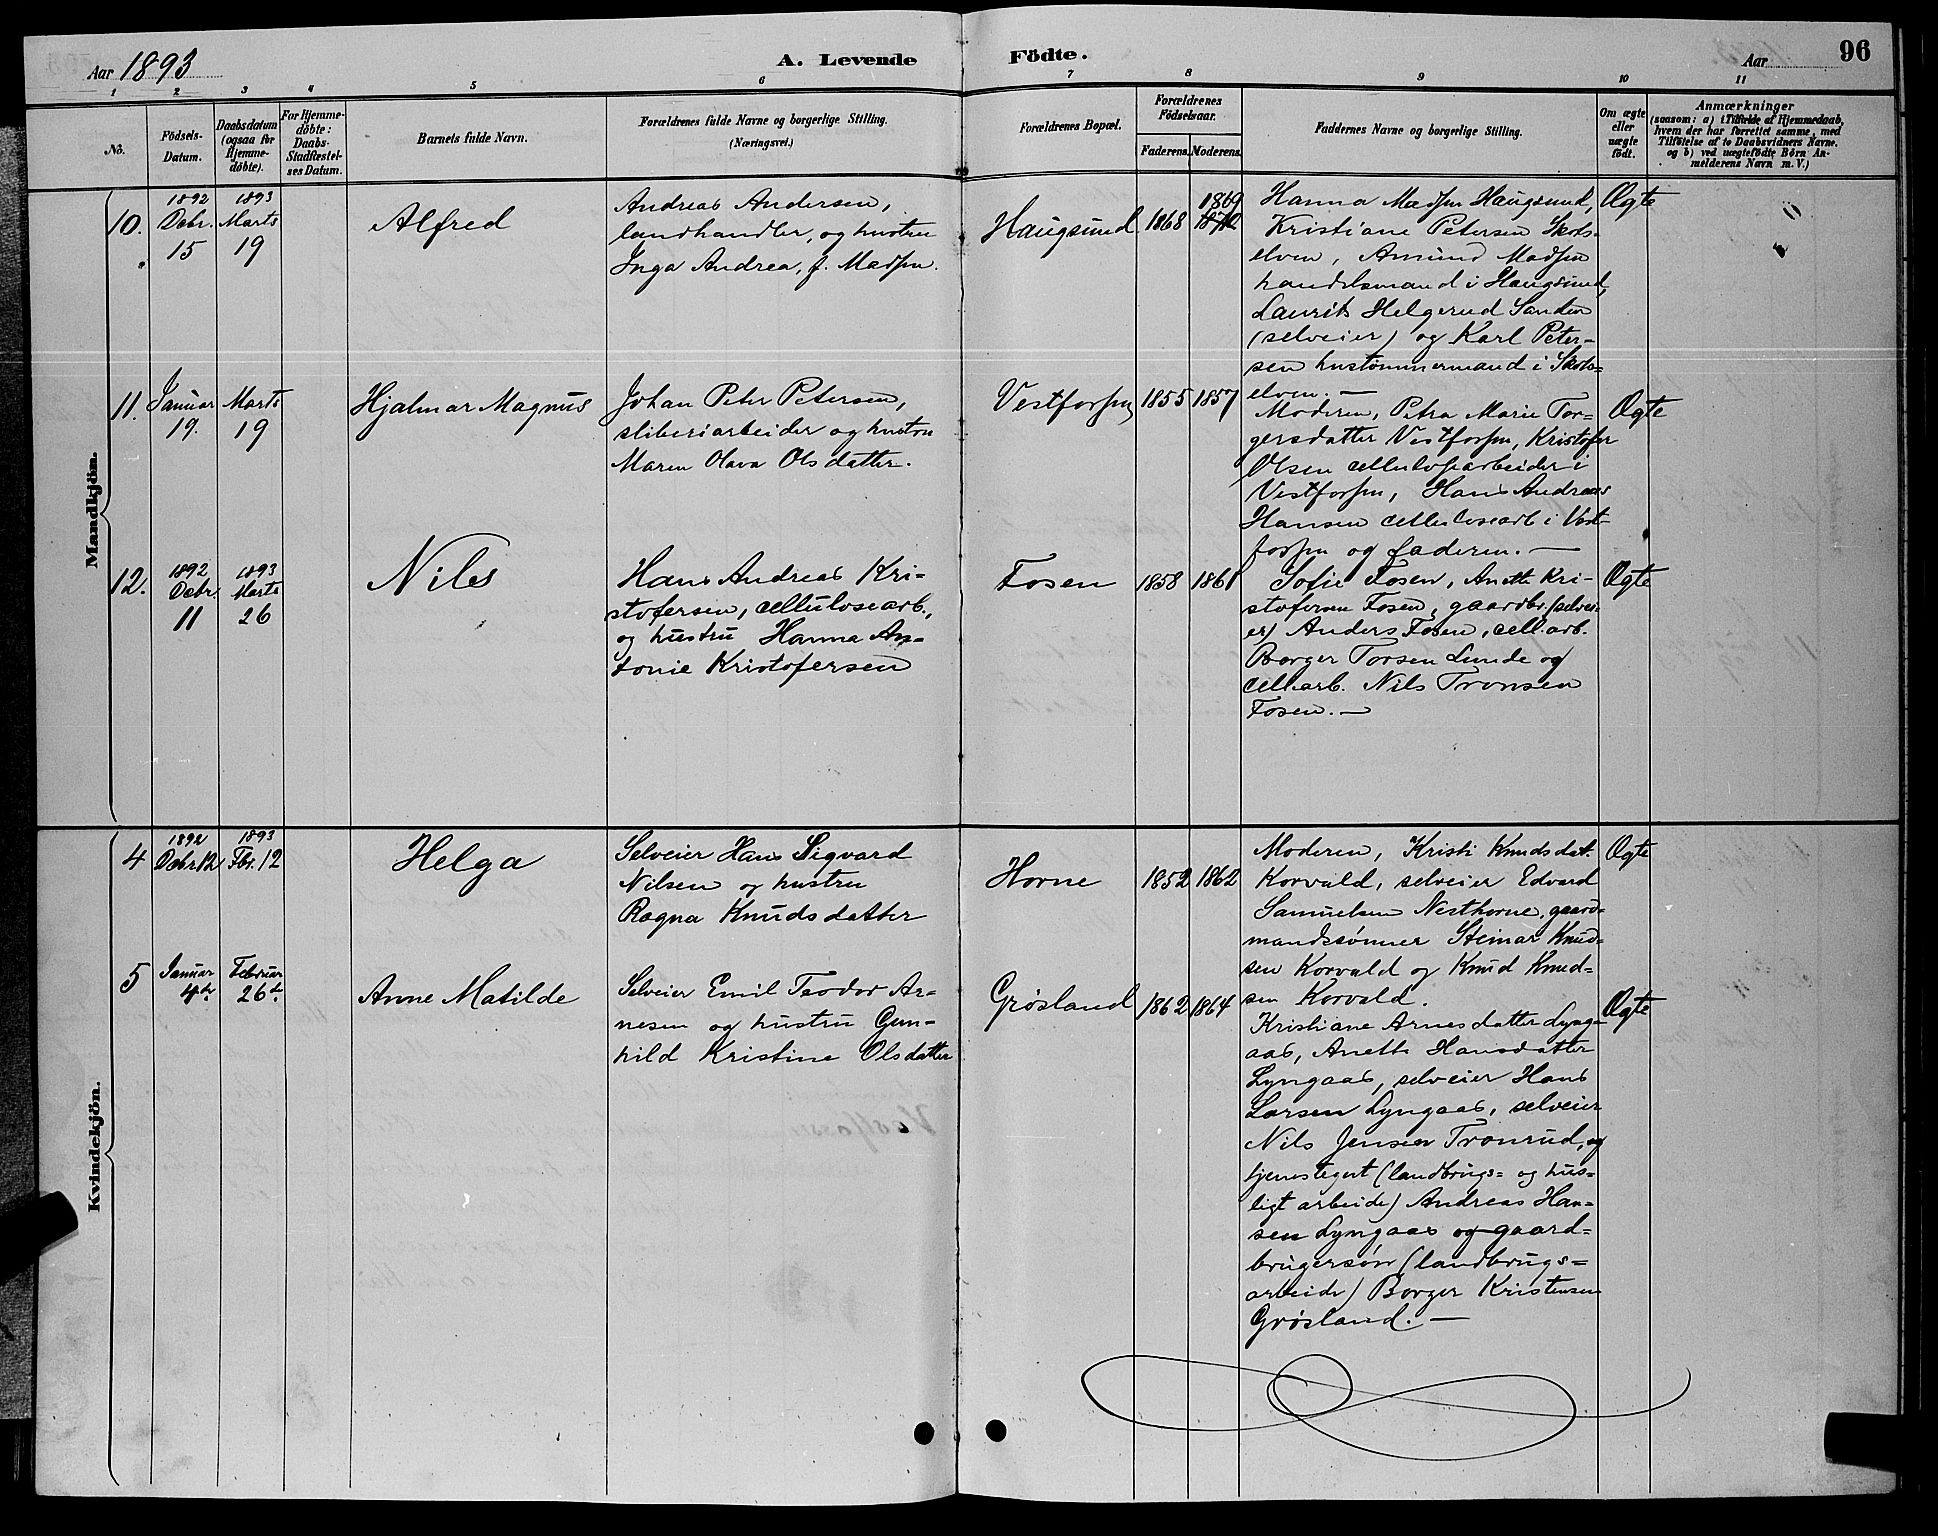 Aar 1893
A. Levende
Födte.
Aar
96
1 2 3 4 5 6 7 8 9 10 11
No.
Födsels-
Datum.
Daabsdatum
(ogsaa for
Hjemme-
döbte).
For Hjemme-
döbte:
Daabs-
Stadfæstel-
ses Datum.
Barnets fulde Navn.
Forældrenes fulde Navne og borgerlige Stilling.
(Næringsvei.)
Forældrenes Bopæl.
Forældrenes
Födselsaar.
Faderens. Moderens.
Faddernes Navne og borgerlige Stilling.
Om ægte
eller
uægte
födt.
Anmærkninger
(saasom: a) i Tilfælde af Hjemmedaab,
hvem der har forrettet samme, med
Tilföielse af to Daabsvidners Navne.
og b) ved uægtefödte Börn An-
melderens Navn m. V.)
Mandkjön.
10.
1892
Decbr.
15
1893
Marts
19
Alfred
Andreas Andersen,
landhandler, og hustru
Inga Andrea, f. Madsen.
Haugsund
1868
1869
Hanna Madsen Haugsund,
Kristiane Petersen Skots-
elven, Amund Madsen
handelsmand i Haugsund,
Laurits Helgerud Sanden
(selveier) og Karl Peter-
sen hustømmermand i Skots-
elven. —
Ægte
11.
Januar
19.
Marts
19
Hjalmar Magnus
Johan Peter Petersen,
sliberiarbeider og hustru
Maren Olava Olsdatter.
Vestfossen
1855
1857
Moderen, Petra Marie Tor-
gersdatter Vestfossen, Kristofer
Olsen cellulosearbeider i
Vestfossen, Hans Andreas
Hansen cellulosearb. i Vest-
fossen og faderen. —
Ægte
12.
1892
Decbr.
11
1893
Marts
26
Nils
Hans Andreas Kri-
stofersen, cellulosearb.,
og hustru Hanna An-
tonie Kristofersen
Fosen
1858
1861
Sofie Fosen, Anette Kri-
stofersen Fosen, gaardbr. (selvei-
er) Anders Fosen, cell.arb.
Borger Torsen Lunde og
cell.arb. Nils Tronsen
Fosen. —
Ægte
Kvindekjön.
4
1892
Decbr. 12
1893
Fbr. 12
Helga
Selveier Hans Sigvard
Nilsen og hustru
Ragna Knudsdatter
Horne
1852
1862
Moderen, Kristi Knudsdat.
Korvald, selveier Edvard
Samuelsen Nesthorne, gaard-
mandssønner Steinar Knud-
sen Korvald og Knud Knud-
sen Korvald.
Ægte
5
Januar
4de.
Februar
26d.
Anne Matilde
Selveier Emil Teodor Ar-
nesen og hustru Gun-
hild Kristine Olsdatter
Grøsland
1862
1864
Kristiane Arnesdatter Lyng-
aas, Anette Hansdatter
Lyngaas, selveier Hans
Larsen Lyngaas, selveier
Nils Jensen Tronrud, og
tjenestegut (landbrugs- og hus-
ligt arbeide) Andreas Han-
sen Lyngaas og gaard-
brugersøn (landbrugs-
arbeide) Borger Kristensen
Grøsland. —
Ægte